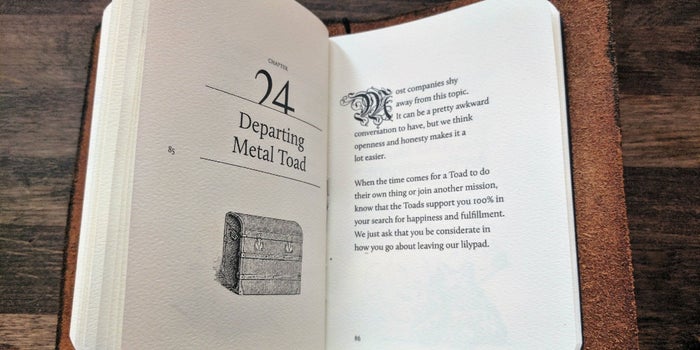 CHAPTER
24
Departing
Metal Toad
85
Most companies shy
away from this topic.
It can be a pretty awkward
conversation to have, but we think
openness and honesty makes it a
lot easier.
When the time comes for a Toad to do
their own thing or join another mission,
know that the Toads support you 100% in
your search for happiness and fulfillment.
We just ask that you be considerate in
how you go about leaving our lilypad.
86